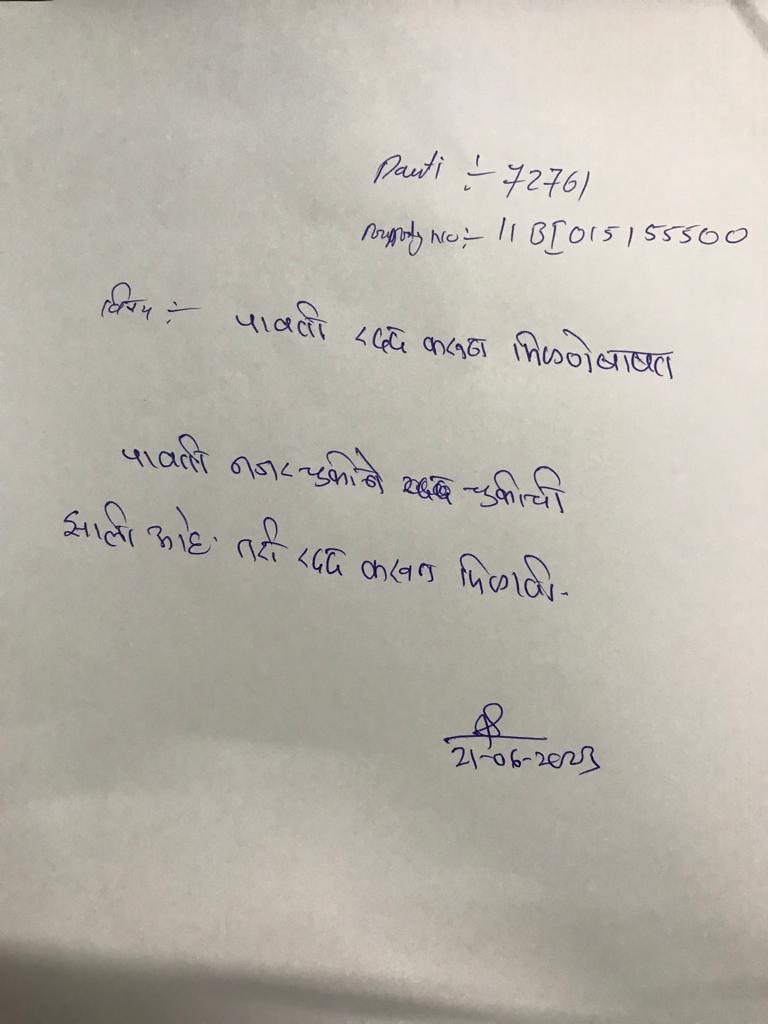 Pauti :- 72761
Property No :- 11BI015155500
विषय :- पावती रद्द करून मिळणेबाबत
पावती नजरचुकीने चुकीची
झाली आहे. तरी रद्द करून मिळावी.
21-06-2023